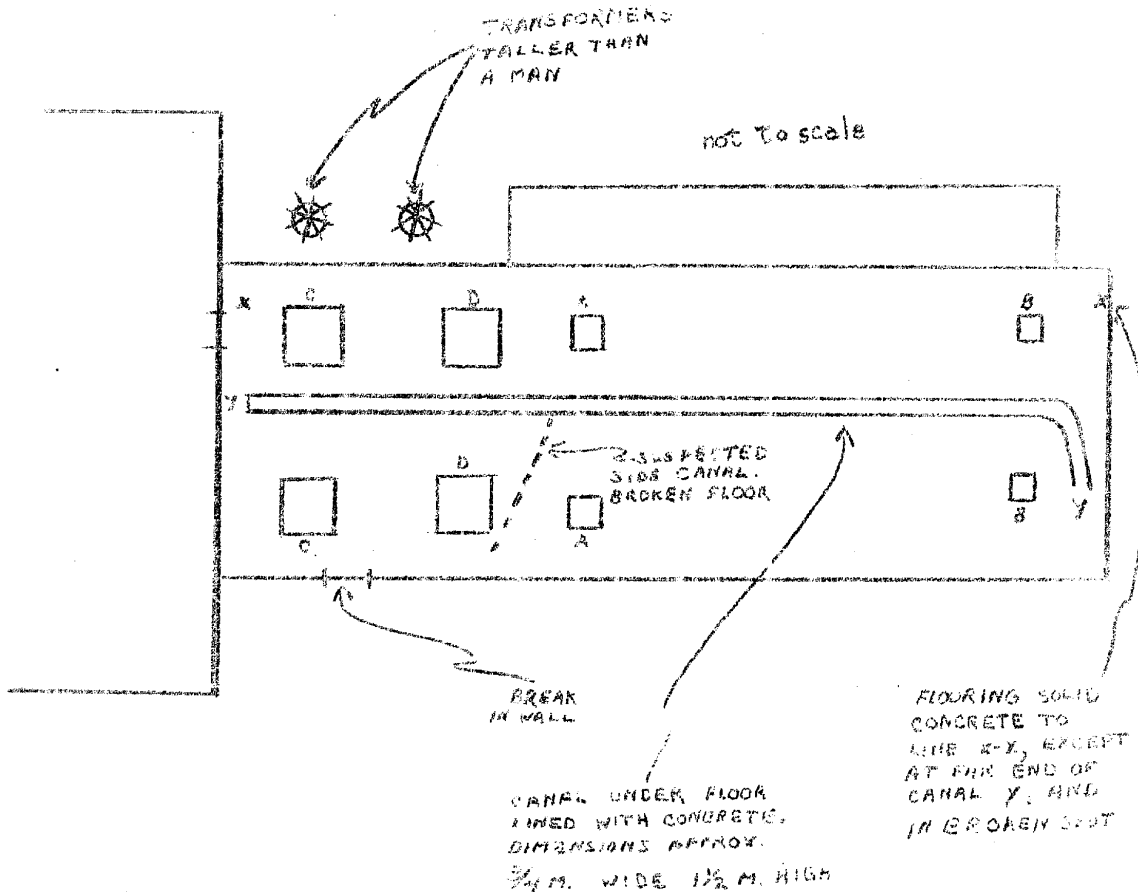 TRANSFORMERS
TALLER THAN
A MAN
not to scale
X
C
D
A
B
X
Y
Z-SUSPECTED
SIDE CANAL.
BROKEN FLOOR
D
C
A
B
Y
BREAK
IN WALL
CANAL UNDER FLOOR
LINED WITH CONCRETE.
DIMENSIONS APPROX.
3/4 M. WIDE 1 1/2 M. HIGH
FLOORING SOLID
CONCRETE TO
LINE X-X, EXCEPT
AT FAR END OF
CANAL Y, AND
IN BROKEN SPOT